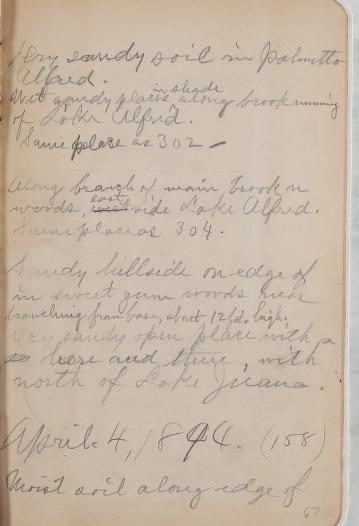 Very sandy soil in Palmetto
Alfred.
in shade
Wet sandy places along brook running
of Lake Alfred.
Same place as 302 –
Along branch of main brook on
east
woods, west side Lake Alfred.
Same place as 304.
Sandy hillside on edge of
in sweet gum woods near
branching from base, about 12 ft. high.
Very sandy open place with a
here and there, with
north of Lake Juana.
April. 4, 1894. (158)
Moist soil along edge of